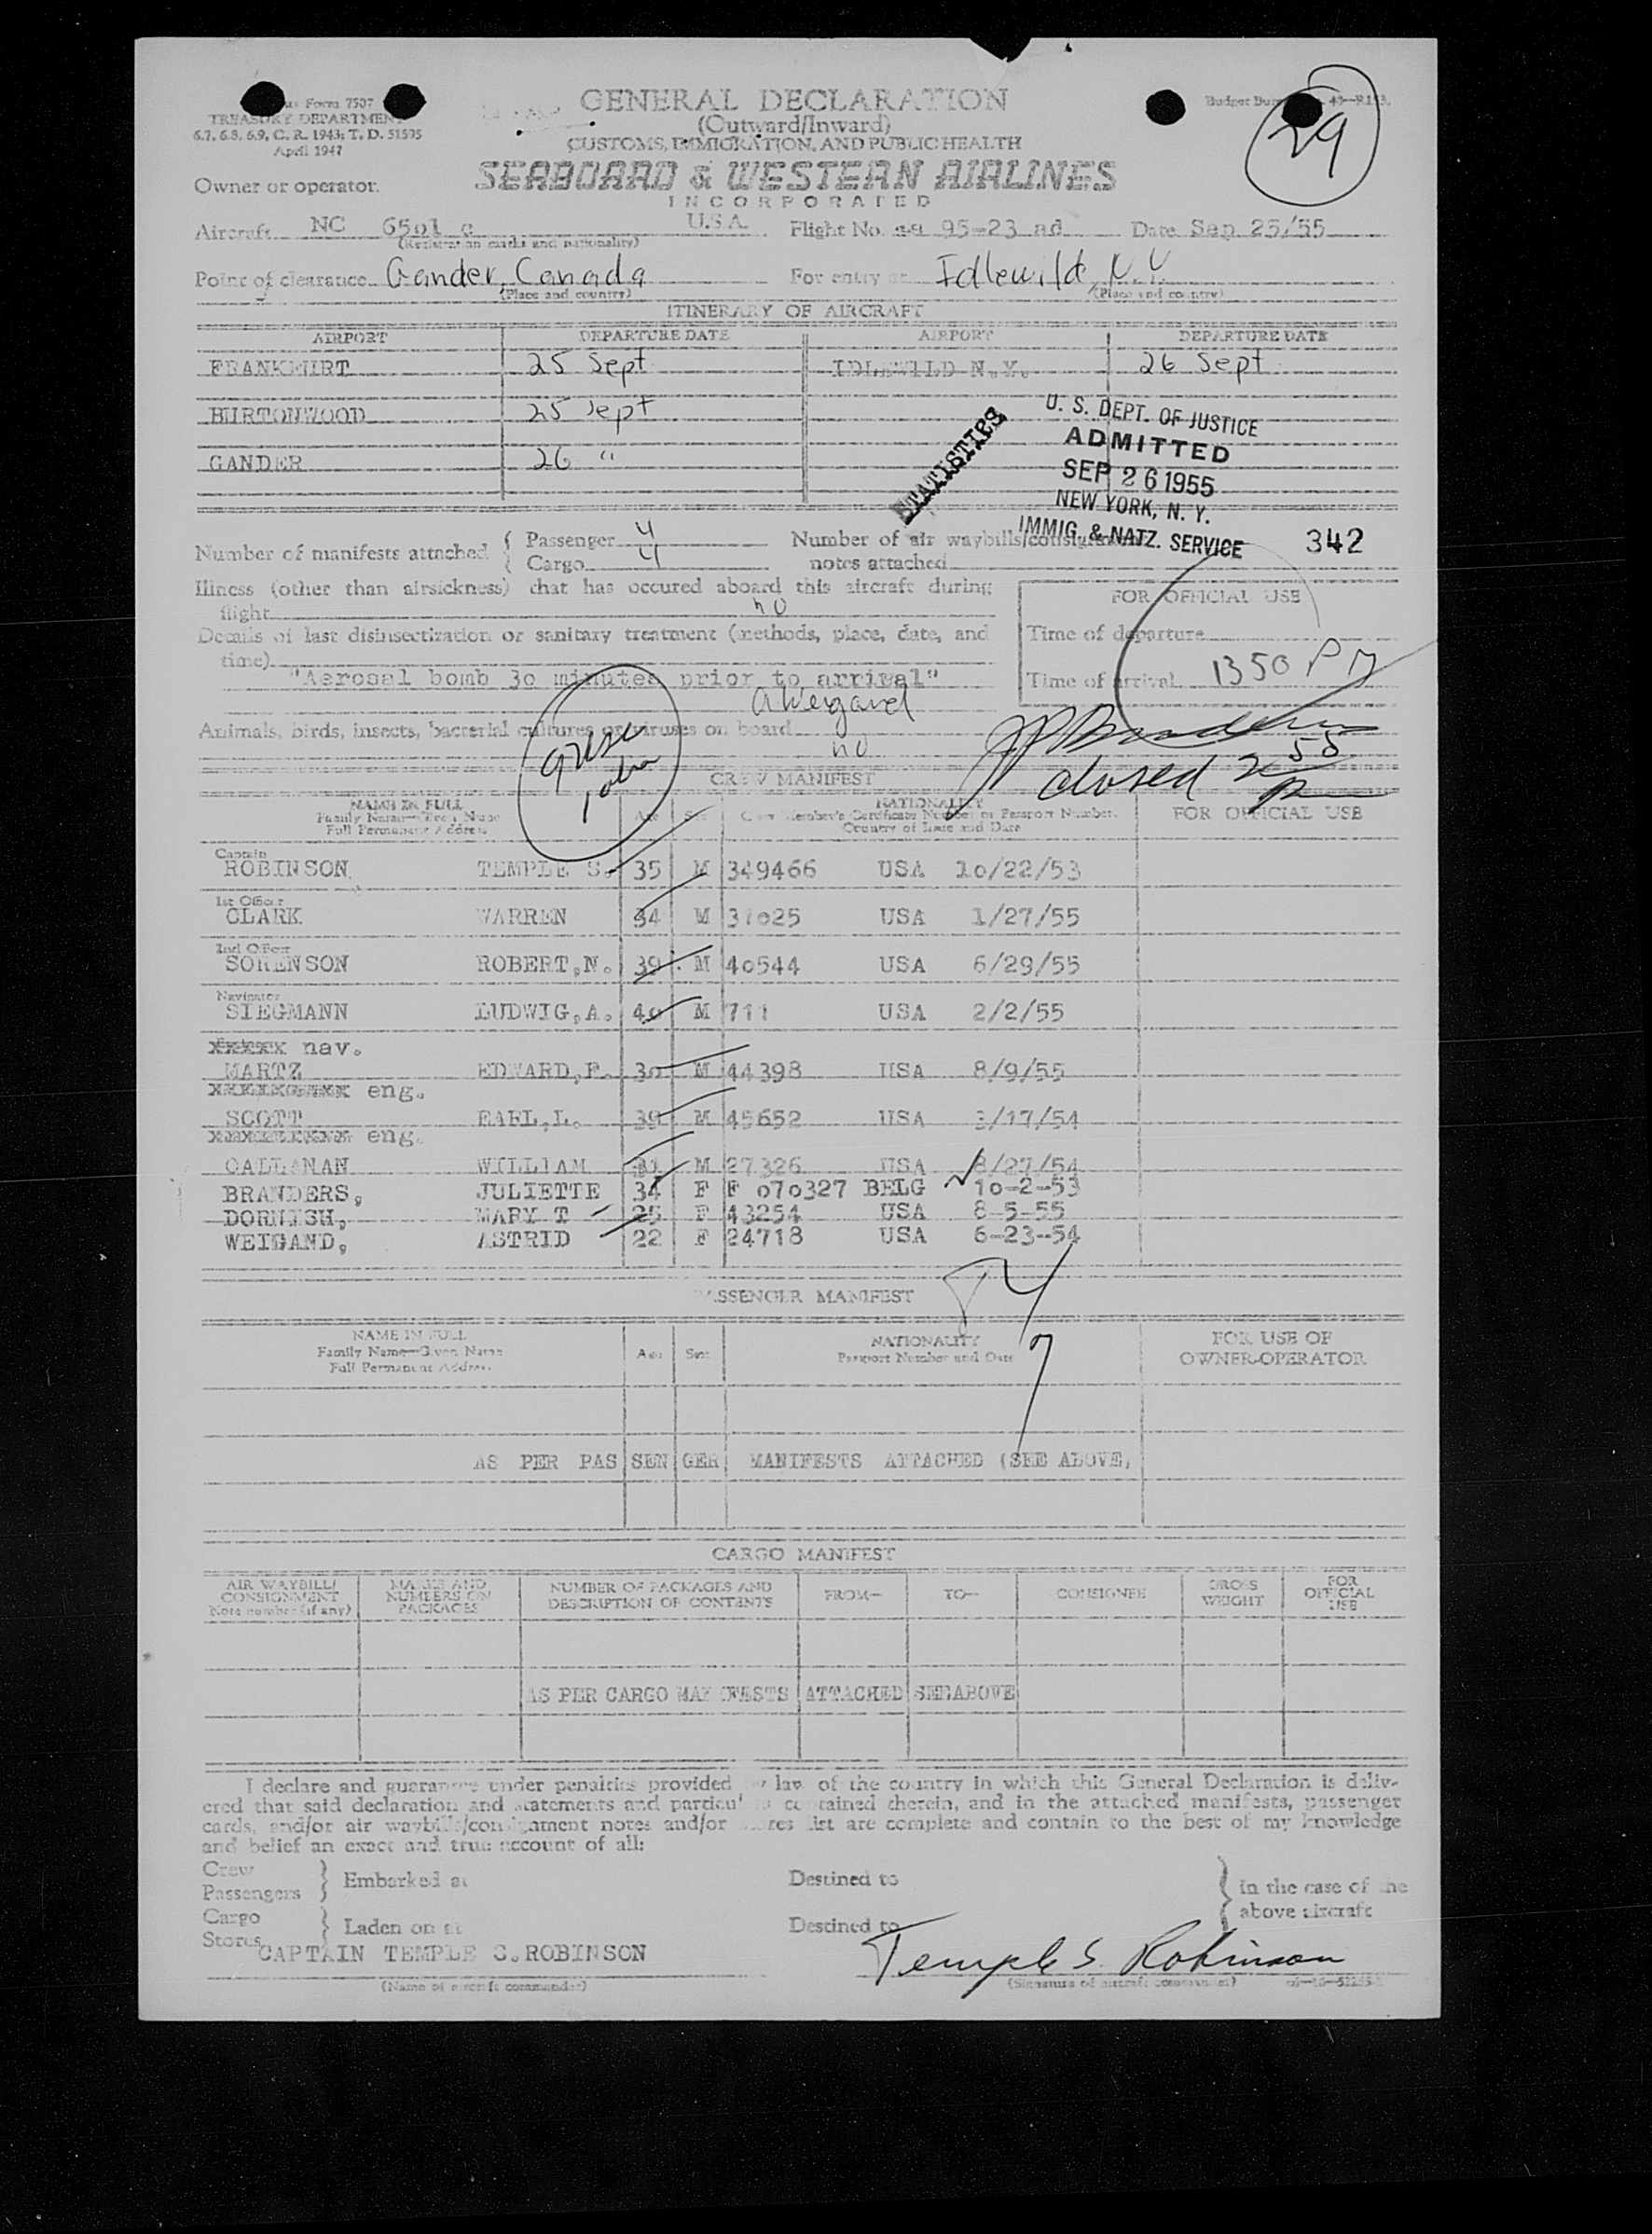 Form 7507
TREASURY DEPARTMENT
6.7, 6.8, 6.9, C. R. 1943; T. D. 51595
April 1947
GENERAL DECLARATION
(Outward/Inward)
CUSTOMS, IMMIGRATION, AND PUBLIC HEALTH
29
Owner or operator.
SEABOARD & WESTERN AIRLINES
INCORPORATED
Aircraft NC 6501 c U.S.A. Flight No. 95-23 ad Date Sep 25/55
(Registration marks and nationality)
Point of clearance Gander, Canada For entry at Idlewild, N.Y.
(Place and country) (Place and country)
ITINERARY OF AIRCRAFT
AIRPORT DEPARTURE DATE AIRPORT DEPARTURE DATE
FRANKFURT 25 Sept IDLEWILD N.Y. 26 Sept
BURTONWOOD 25 Sept
GANDER 26 "
STATISTICS
U. S. DEPT. OF JUSTICE
ADMITTED
SEP 26 1955
NEW YORK, N. Y.
IMMIG. & NATZ. SERVICE 342
Number of manifests attached { Passenger 4
Cargo 4
Number of air waybills/consignment
notes attached
Illness (other than airsickness) that has occured aboard this aircraft during
flight no
Details of last disinsectization or sanitary treatment (methods, place, date, and
time)
"Aerosal bomb 30 minutes prior to arrival"
A Weigand
Animals, birds, insects, bacterial cultures or viruses on board
no
FOR OFFICIAL USE
Time of departure
Time of arrival 1350 PM
closed 2 55 p
CREW MANIFEST
NAME IN FULL
Family Name—Given Name
Full Permanent Address
Age Sex
NATIONALITY
Crew Member's Certificate Number or Passport Number.
Country of Issue and Date
FOR OFFICIAL USE
Captain
ROBINSON TEMPLE S. 35 M 349466 USA 10/22/53
1st Officer
CLARK WARREN 34 M 37025 USA 1/27/55
2nd Officer
SORENSON ROBERT,N. 39 M 40544 USA 6/29/55
Navigator
SIEGMANN LUDWIG,A. 40 M 711 USA 2/2/55
nav.
MARTZ EDWARD,F. 30 M 44398 USA 8/9/55
eng.
SCOTT EARL,L. 39 M 45652 USA 3/17/54
eng.
CALLANAN WILLIAM 31 M 27326 USA 8/27/54
BRANDERS, JULIETTE 34 F F 070327 BELG 10-2-53
DORNISH, MARY T 25 F 43254 USA 8-5-55
WEIGAND, ASTRID 22 F 24718 USA 6-23-54
PASSENGER MANIFEST
NAME IN FULL
Family Name—Given Name
Full Permanent Address
Age Sex
NATIONALITY
Passport Number and Date
FOR USE OF
OWNER-OPERATOR
AS PER PASSENGER MANIFESTS ATTACHED (SEE ABOVE,
CARGO MANIFEST
AIR WAYBILL/
CONSIGNMENT
Note number (if any)
MARKS AND
NUMBERS ON
PACKAGES
NUMBER OF PACKAGES AND
DESCRIPTION OF CONTENTS
FROM—
TO—
CONSIGNEE
GROSS
WEIGHT
FOR
OFFICIAL
USE
AS PER CARGO MANIFESTS ATTACHED SEE ABOVE
I declare and guarantee under penalties provided by law of the country in which this General Declaration is deliv-
ered that said declaration and statements and particulars contained therein, and in the attached manifests, passenger
cards, and/or air waybills/consignment notes and/or stores list are complete and contain to the best of my knowledge
and belief an exact and true account of all:
Crew
Passengers } Embarked at Destined to
Cargo
Stores } Laden on at Destined to
} In the case of the
above aircraft
CAPTAIN TEMPLE S.ROBINSON
Temple S. Robinson
(Name of aircraft commander) (Signature of aircraft commander)